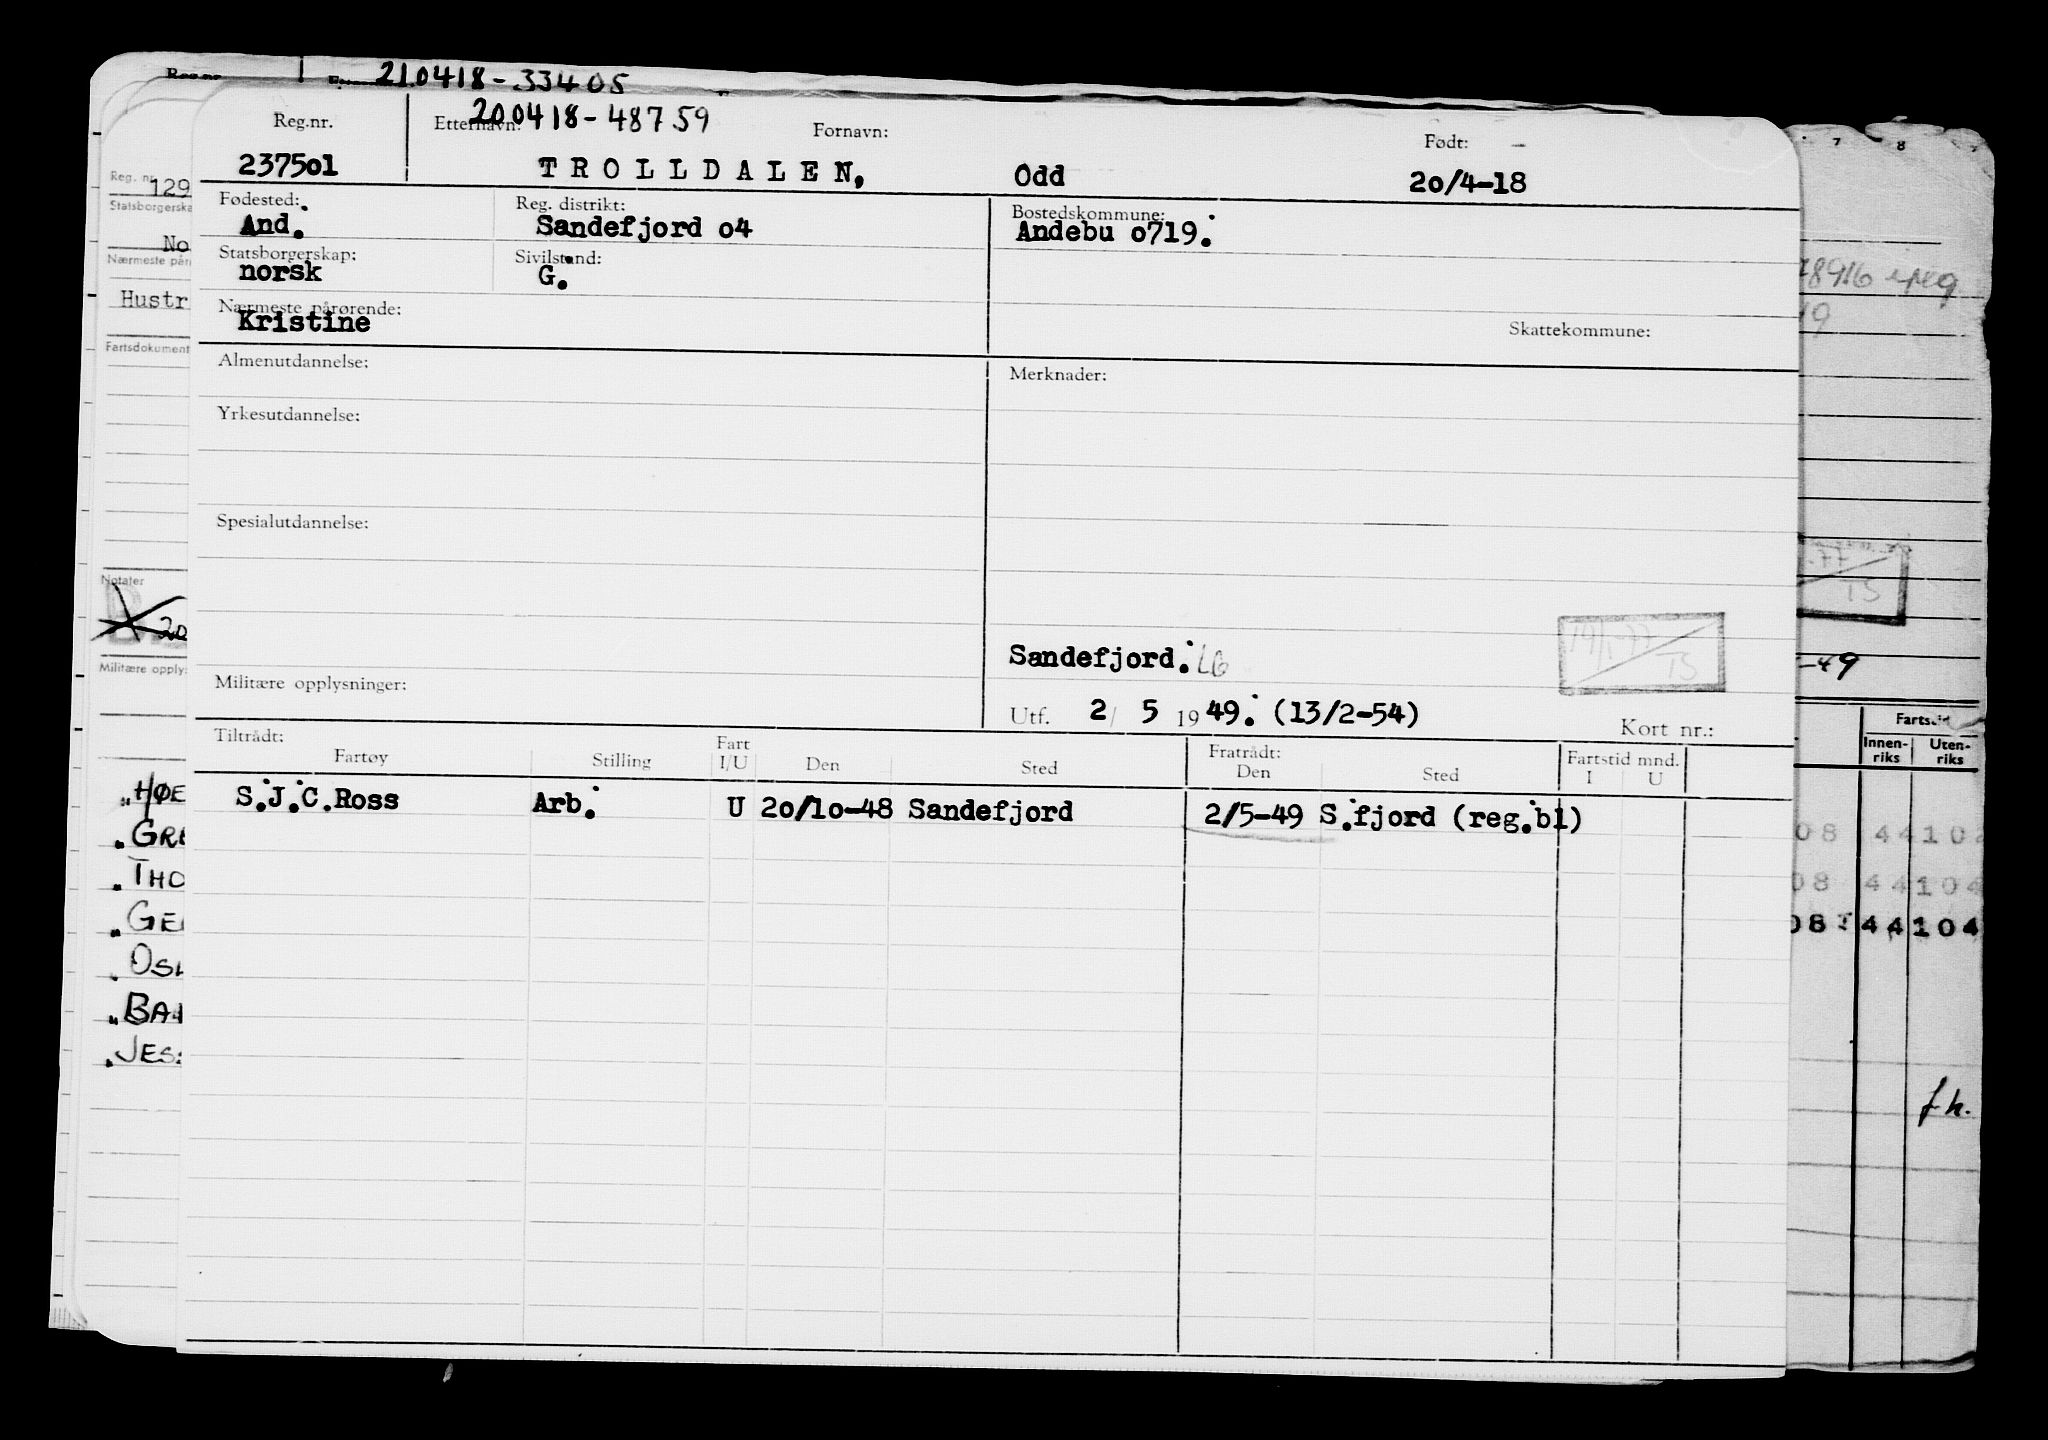 210418-33405
200418-48759
Reg.nr. Etternavn: Fornavn: Født:
237501 TROLLDALEN, Odd 20/4-18
Fødested: Reg. distrikt: Bostedskommune:
And. Sandefjord 04 Andebu 0719.
Statsborgerskap: Sivilstand:
norsk G.
Nærmeste pårørende: Skattekommune:
Kristine
Almenutdannelse: Merknader:
Yrkesutdannelse:
Spesialutdannelse:
Sandefjord. LG
Militære opplysninger:
Utf. 2/ 5 1949. (13/2-54) Kort nr.:
Tiltrådt: Fratrådt:
Fartøy Stilling Fart I/U Den Sted Den Sted Fartstid mnd. I U
S.J.C.Ross Arb. U 20/10-48 Sandefjord 2/5-49 S.fjord (reg.bl)
Reg. nr.
129
No
Hustr
Fartsdokument
Notater
Militære opply:
HØE
GRE
THO
GE
OSL
BA
JES
7 8
-49
Fartstid
Innen-riks Uten-riks
08 44 102
08 44 104
08 44 104
f.h.